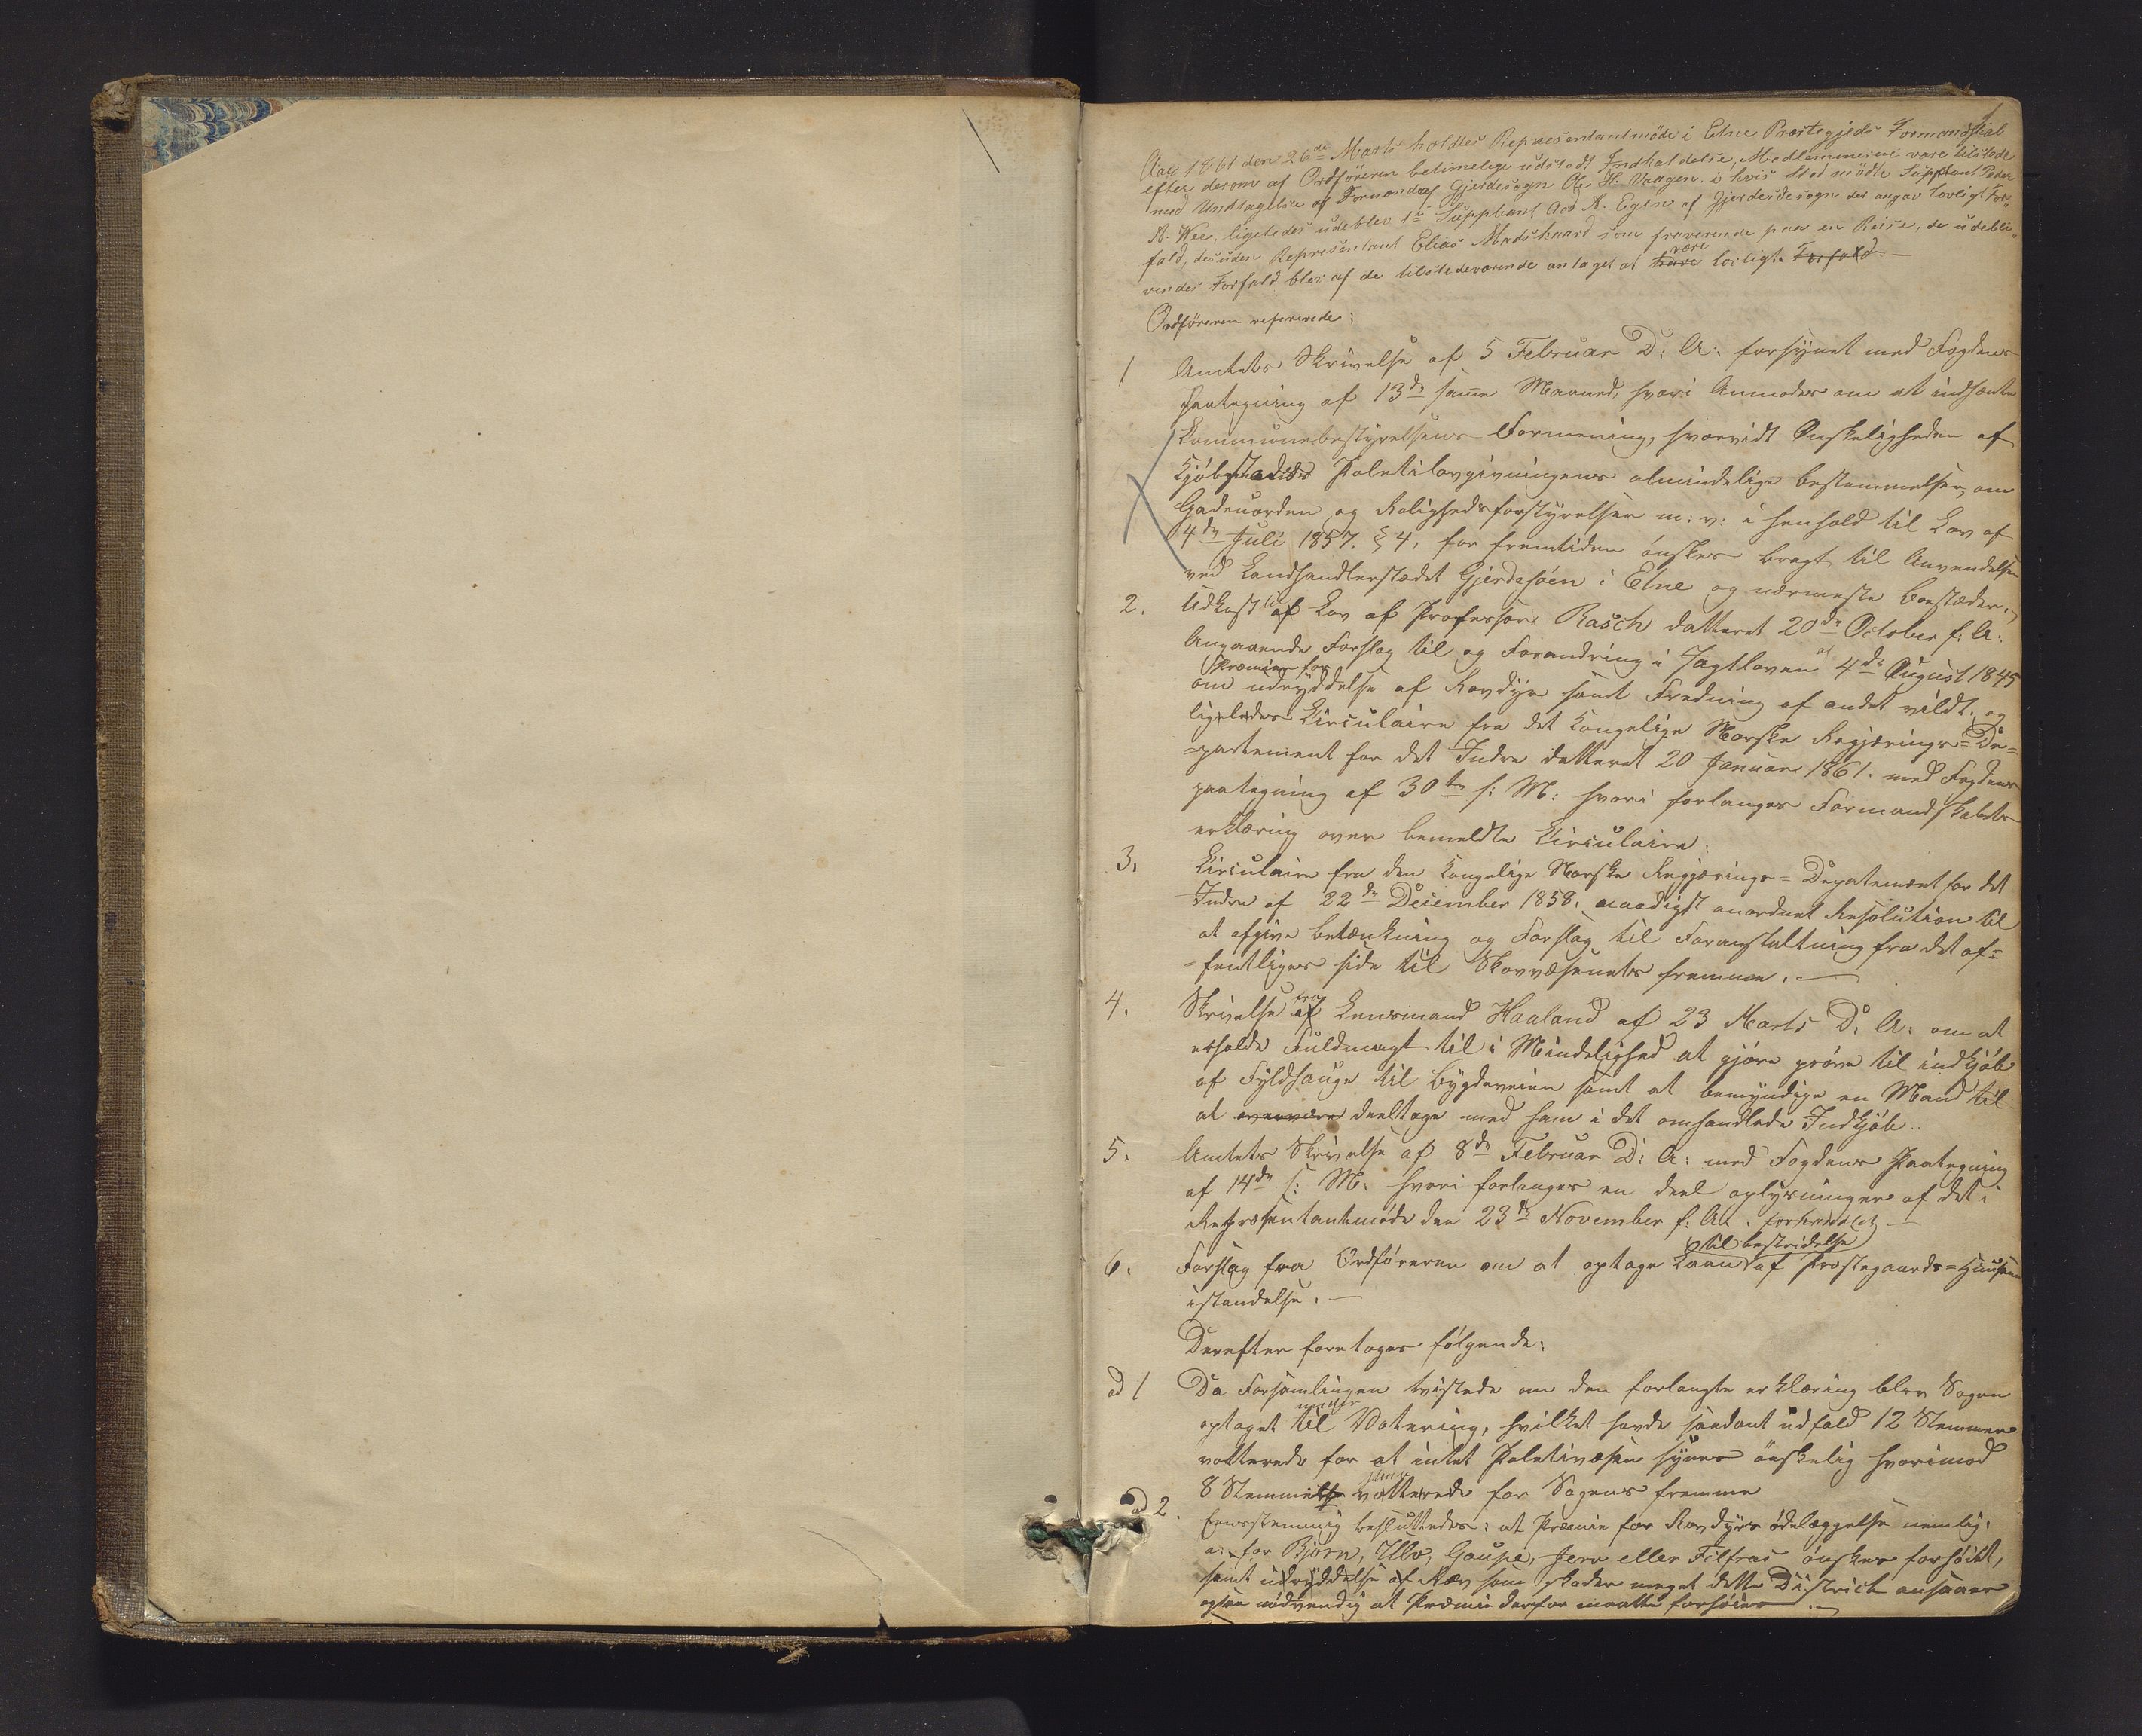 1
Aar 1861 den 26de Marts holdtes Representantmöde i Etne Præstegjeds Formandskab
efter derom af Ordföreren betimelige udstædt Indkaldelse, Medlemmerne vare tilstede
med Undtagelse af Formand af Gjerdesogn Ole H. Vaagen i hvis Sted mödte Suppleant Peder
A. Wee, ligeledes udeblev 1te Suppleant Ard A. Egen af Gjerdesogn der angav lovligt For-
fald, desuden Representant Elias Madskaard som fraværende paa en Reise, de udebli-
vendes Forfald blev af de tilstedeværende antaget at have være lovligt Forfald.
Ordföreren refererede:
1 Amtets Skrivelse af 5 Februar D: A: forsynet med Fogdens
Paategning af 13de samme Maaned, hvori Anmodes om at indhente
Kommunebestyrelsens Formening, hvorvidt Ønskeligheden af
Kjöbstædernes Politilovgivningens almindelige bestemmelser, om
Gadeuorden og Rolighedsforstyrelser m: v: i henhold til Lov af
4de Juli 1857. § 4, for fremtiden önskes bragt til Anvendelse
ved Landhandlerstædet Gjerdesöen i Etne og nærmeste bostæder.
2. Udkast til af Lov af Professor Rasch datteret 20de October f: A:
Angaaende Forslag til og Forandring i Jagtloven af 4de August 1845
om Præmier for udryddelse af Rovdyr samt Fredning af andet vildt, og
ligeledes Circulaire fra det Kongelige Norske Regjerings-De-
-partement for det Indre datteret 20 Januar 1861. med Fogdens
paategning af 30te s: M: hvori forlanges Formandskabets
erklæring over bemeldte Circulaire.
3. Circulaire fra den Kongelige Norske Regjerings-Departement for det
Indre af 22de December 1858. naadigst anordnet Resolution til
at afgive betænkning og Forslag til Foranstaltning fra det of-
-fentliges side til Skovvæsenets fremme.
4. Skrivelse fra af Lensmand Haaland af 23 Marts D: A: om at
erholde Fuldmagt til i Mindelighed at gjöre pröve til indkjöb
af Fyldhauge til bygdeveien samt at bemyndige en Mand til
at overvære deeltage med ham i det omhandlede Indkjöb..
5. Amtets Skrivelse af 8de Februar D: A: med Fogdens Paategning
af 14de s: M: hvori forlanges en deel oplysninger af det i
Representantmöde den 23de November f: Aa. forhandlet
6. Forslag fra Ordföreren om at optage Laan til bestridelse af Præstegaards-Husenes
istandelse.
Derefter foretoges fölgende:
ad 1 Da Forsamlingen tvistede om den forlangte erklæring blev Sagen
optaget til under Votering, hvilket havde saadant udfald 12 Stemmer
votterede for at intet Politivæsen synes önskelig hvorimod
8 Stemmer votterede for Sagens fremme
ad 2. Eenstemmig besluttedes: at Præmie for Rovdyrs ödelæggelse nemlig:
a: for Björn, Ulv, Goupe, Jerv eller Filfras önskes forhöiet,
samt udryddelse af Ræv som skader meget dette District ansaaes
ogsaa nödvendig at Præmie derfor maatte forhöies